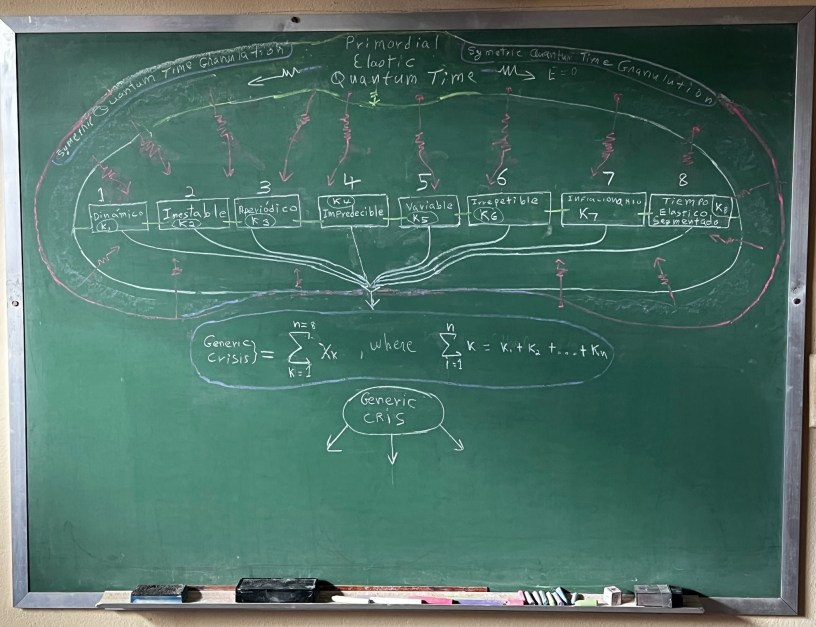 Primordial
Elastic
Quantum Time
Symetric Quantum Time Granulation
Symetric Quantum Time Granulation
E=0
1 2 3 4 5 6 7 8
Dinámico
K1
Inestable
K2
Aperiódico
K3
K4
Impredecible
Variable
K5
Irrepetible
K6
K7
Tiempo
Elastico
Segmentado
K8
Generic
Crisis} = ∑ k=1 n=8 Xk , where ∑ i=1 n K = K1 + K2 + .... + Kn
Generic
CRIS